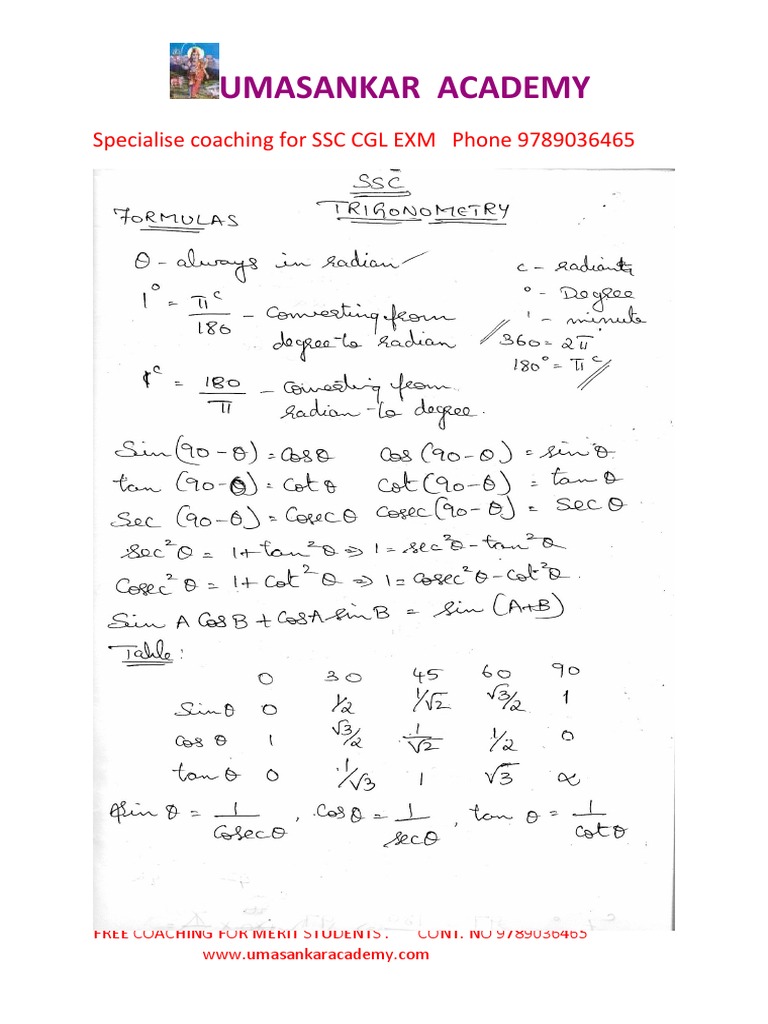 UMASANKAR ACADEMY
Specialise coaching for SSC CGL EXM Phone 9789036465
SSC
FORMULAS TRIGONOMETRY
θ - always in radian c - radian
1° = πᶜ/180 - Converting from degree to radian ° - Degree
' - minute
360 = 2π
180° = πᶜ
1ᶜ = 180/π - Converting from
radian to degree.
Sin (90 - θ) = Cosθ Cos (90 - θ) = sin θ
tan (90 - θ) = Cot θ Cot (90 - θ) = tan θ
Sec (90 - θ) = Cosec θ Cosec (90 - θ) = Sec θ
sec²θ = 1 + tan²θ ⇒ 1 = sec²θ - tan²θ
Cosec²θ = 1 + Cot²θ ⇒ 1 = Cosec²θ - Cot²θ
Sin A Cos B + Cos A sin B = sin (A+B)
Table:
0 30 45 60 90
Sinθ 0 1/2 1/√2 √3/2 1
Cos θ 1 √3/2 1/√2 1/2 0
tan θ 0 1/√3 1 √3 ∝
Sin θ = 1/Cosecθ , Cosθ = 1/secθ , tan θ = 1/Cotθ
FREE COACHING FOR MERIT STUDENTS . CONT. NO 9789036465
www.umasankaracademy.com